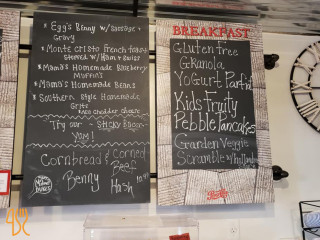 * Eggs Benny w/ Sausage + Gravy
* Monte Cristo French toast
Stuffed w/ Ham & Swiss
* Mama's Homemade Blueberry
Muffins
* Mama's Homemade Beans
* Southern Style Homemade
Grits
Add Cheddar cheese
Try our - STICKY BACON -
YUM!
Cornbread & Corned
Beef
Benny Hash 10.99
BREAKFAST
Gluten Free
Granola
Yogurt Parfait
Kids Fruity
Pebble Pancakes
Garden Veggie
Scramble